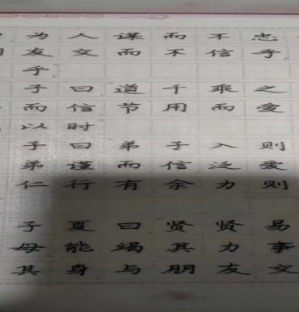 为人谋而不忠
友交而不信乎
乎
子曰道千乘之
而信节用而爱
以时
子曰弟子入则
弟谨而信泛爱
仁行有余力则
子夏曰贤贤易
母能竭其力事
其身与朋友交